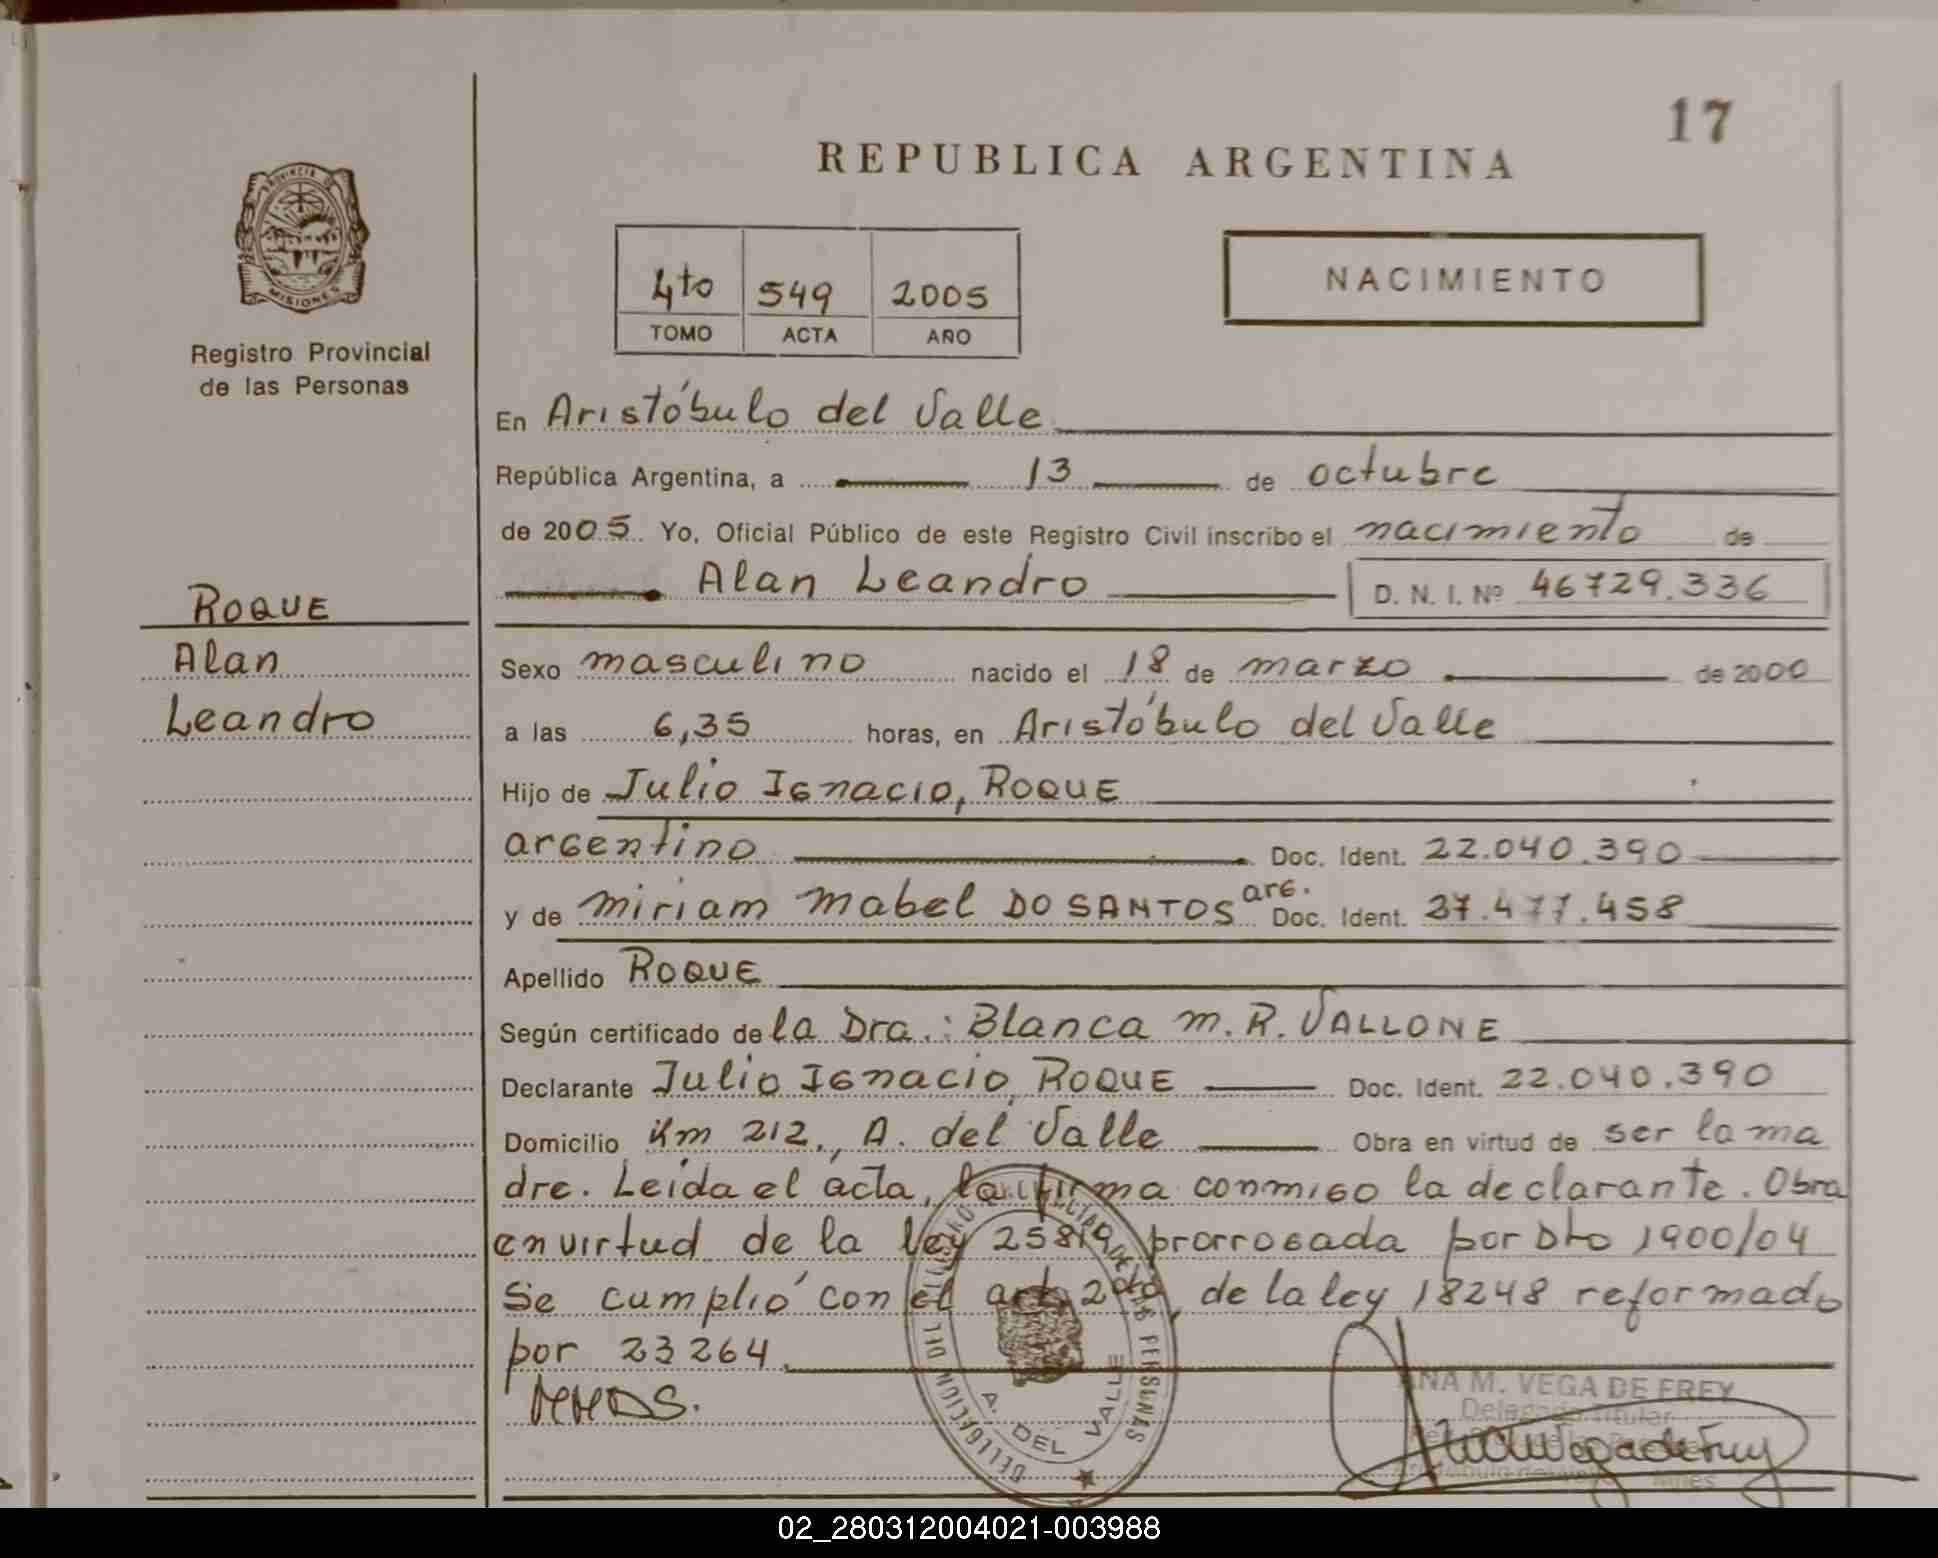 17
REPUBLICA ARGENTINA
PROVINCIA DE
MISIONES
Registro Provincial
de las Personas
4to 549 2005
TOMO ACTA AÑO
NACIMIENTO
En Aristóbulo del Valle
República Argentina, a 13 de octubre
de 2005. Yo, Oficial Público de este Registro Civil inscribo el nacimiento de
Alan Leandro D. N. I. Nº 46729.336
ROQUE
Alan
Leandro
Sexo masculino nacido el 18 de marzo de 2000
a las 6,35 horas, en Aristóbulo del Valle
Hijo de Julio Ignacio, ROQUE
argentino Doc. Ident. 22.040.390
y de Miriam Mabel DO SANTOS arg. Doc. Ident. 27.477.458
Apellido ROQUE
Según certificado de la Dra.: Blanca M. R. VALLONE
Declarante Julio Ignacio, ROQUE Doc. Ident. 22.040.390
Domicilio Km 212., A. del Valle Obra en virtud de ser la ma
dre. Leída el acta, la firma conmigo la declarante. Obra
en virtud de la ley 25819 prorrogada por Dto 1900/04
Se cumplió con el art. 2do, de la ley 18248 reformado
por 23264
MMDS.
A. DEL VALLE
ANA M. VEGA DE FREY
Delegada Titular
02_280312004021-003988